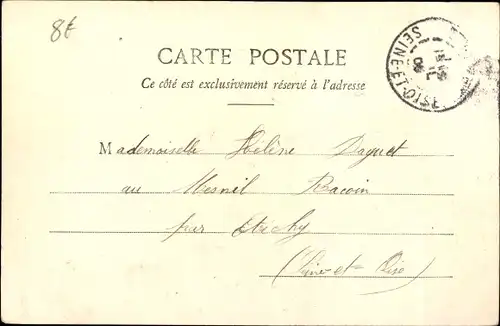 8€
CARTE POSTALE
Ce côté est exclusivement réservé à l'adresse
SEINE-ET-OISE
Mademoiselle Hélène Daguet
au Mesnil Racoin
par Etréchy
(Seine et Oise)